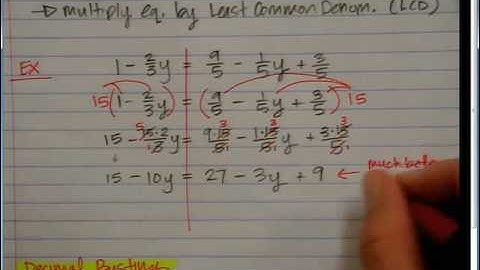 → multiply eq. by Least Common Denom. (LCD)
Ex
1 - 2/3 y = 9/5 - 1/5 y + 3/5
15 (1 - 2/3 y) = (9/5 - 1/5 y + 3/5) 15
15 - 15·2/3 y = 9·15/5 - 1·15/5 y + 3·15/5
15 - 10y = 27 - 3y + 9 ← much
Decimal